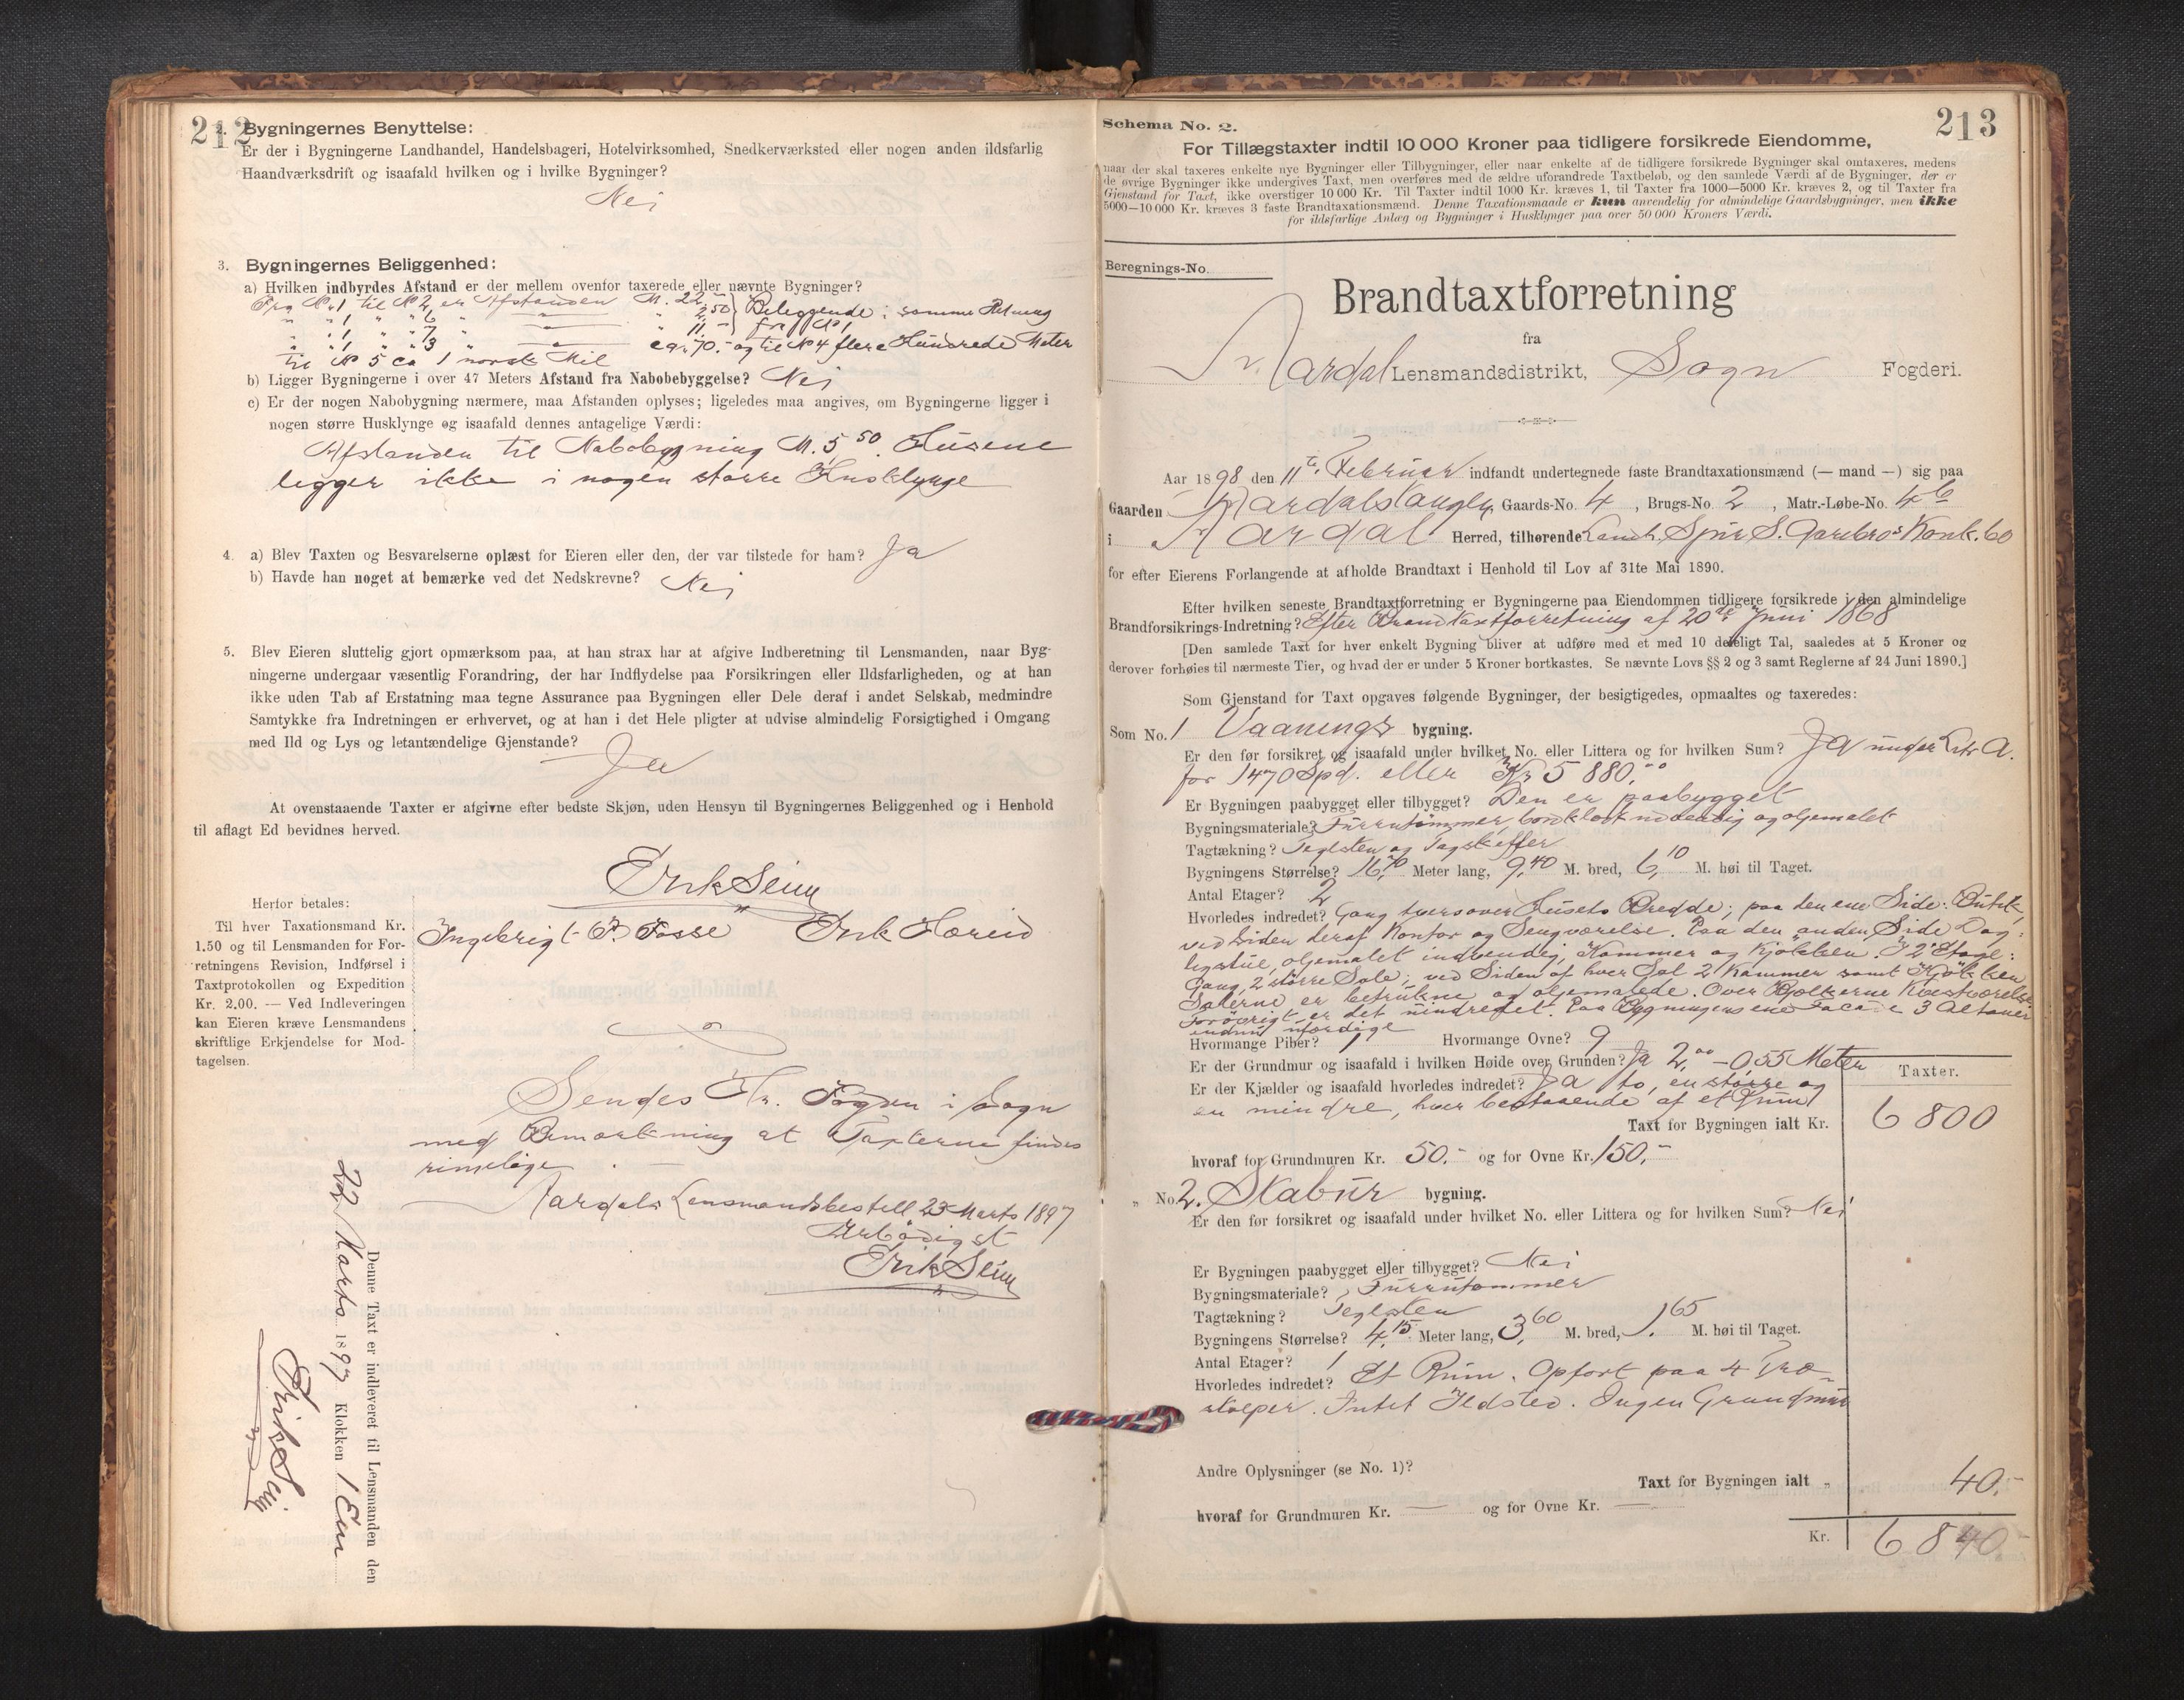 212
2. Bygningernes Benyttelse:
Er der i Bygningerne Landhandel, Handelsbageri, Hotelvirksomhed, Snedkerværksted eller nogen anden ildsfarlig
Haandværksdrift og isaafald hvilken og i hvilke Bygninger?
Nei
3. Bygningernes Beliggenhed:
a) Hvilken indbyrdes Afstand er der mellem ovenfor taxerede eller nævnte Bygninger?
Fra No 1 til No 2 er Afstanden M. 22,50 Beliggende i samme Retning
" " 1 " " 6 " — " 2,50 fra No 1
" " 1 " " 7 " — " 11,-
" " 1 " " 3 " — ca. 70.- og til No 4 flere Hundrede Meter
til No 5 ca 1 norsk Mil
b) Ligger Bygningerne i over 47 Meters Afstand fra Nabobebyggelse? Nei
c) Er der nogen Nabobygning nærmere, maa Afstanden oplyses; ligeledes maa angives, om Bygningerne ligger i
nogen større Husklynge og isaafald dennes antagelige Værdi:
Afstanden til Nabobygning M. 5,50. Husene
ligger ikke i nogen større Husklynge
4. a) Blev Taxten og Besvarelserne oplæst for Eieren eller den, der var tilstede for ham? Ja
b) Havde han noget at bemærke ved det Nedskrevne? Nei
5. Blev Eieren sluttelig gjort opmærksom paa, at han strax har at afgive Indberetning til Lensmanden, naar Byg-
ningerne undergaar væsentlig Forandring, der har Indflydelse paa Forsikringen eller Ildsfarligheden, og at han
ikke uden Tab af Erstatning maa tegne Assurance paa Bygningen eller Dele deraf i andet Selskab, medmindre
Samtykke fra Indretningen er erhvervet, og at han i det Hele pligter at udvise almindelig Forsigtighed i Omgang
med Ild og Lys og letantændelige Gjenstande?
Ja
At ovenstaaende Taxter er afgivne efter bedste Skjøn, uden Hensyn til Bygningernes Beliggenhed og i Henhold
til aflagt Ed bevidnes herved.
Erik Seim
Ingebrigt P. Fosse Erik Hæreid
Herfor betales:
Til hver Taxationsmand Kr.
1.50 og til Lensmanden for For-
retningens Revision, Indførsel i
Taxtprotokollen og Expedition
Kr. 2.00. — Ved Indleveringen
kan Eieren kræve Lensmandens
skriftlige Erkjendelse for Mod-
tagelsen.
Sendes Hr. Fogden i Sogn
med Bemærkning at Taxterne findes
rimelige.
Aardals Lensmandsbestell 23 Marts 1897
Ærbødigst
Erik Seim
Denne Taxt er indleveret til Lensmanden den
22 Marts 1897 Klokken 1 Em
Erik Seim
213
Schema No. 2.
For Tillægstaxter indtil 10 000 Kroner paa tidligere forsikrede Eiendomme,
naar der skal taxeres enkelte nye Bygninger eller Tilbygninger, eller naar enkelte af de tidligere forsikrede Bygninger skal omtaxeres, medens
de øvrige Bygninger ikke undergives Taxt, men overføres med de ældre uforandrede Taxtbeløb, og den samlede Værdi af de Bygninger, der er
Gjenstand for Taxt, ikke overstiger 10 000 Kr. Til Taxter indtil 1000 Kr. kræves 1, til Taxter fra 1000—5000 Kr. kræves 2, og til Taxter fra
5000—10 000 Kr. kræves 3 faste Brandtaxationsmænd. Denne Taxationsmaade er kun anvendelig for almindelige Gaardsbygninger, men ikke
for ildsfarlige Anlæg og Bygninger i Husklynger paa over 50 000 Kroners Værdi.
Beregnings-No.
Brandtaxtforretning
fra
Aardal Lensmandsdistrikt, Sogn Fogderi.
Aar 1898 den 11te Februar indfandt undertegnede faste Brandtaxationsmænd (— mand —) sig paa
Gaarden Aardalstangen, Gaards-No. 4, Brugs-No. 2, Matr.-Løbe-No. 4b
i Aardal Herred, tilhørende Landh. S. Konk.bo
for efter Eierens Forlangende at afholde Brandtaxt i Henhold til Lov af 31te Mai 1890.
Efter hvilken seneste Brandtaxtforretning er Bygningerne paa Eiendommen tidligere forsikrede i den almindelige
Brandforsikrings-Indretning? Efter Brandtaxtforretning af 20de Juni 1868
[Den samlede Taxt for hver enkelt Bygning bliver at udføre med et med 10 deleligt Tal, saaledes at 5 Kroner og
derover forhøies til nærmeste Tier, og hvad der er under 5 Kroner bortkastes. Se nævnte Lovs §§ 2 og 3 samt Reglerne af 24 Juni 1890.]
Som Gjenstand for Taxt opgaves følgende Bygninger, der besigtigedes, opmaaltes og taxeredes:
Som No. 1 Vaanings bygning.
Er den før forsikret og isaafald under hvilket No. eller Littera og for hvilken Sum? Ja under Litr A.
for 1470 Spd. eller Kr 5 880,00
Er Bygningen paabygget eller tilbygget? Den er paabygget
Bygningsmateriale? Furrutømmer, bordklædt udvendig og oljemalet
Tagtækning? Teglsten og Tagskiffer
Bygningens Størrelse? 16,70 Meter lang, 9,40 M. bred, 6,10 M. høi til Taget.
Antal Etager? 2
Hvorledes indredet? Gang tversover Husets Bredde; paa den ene Side: Butik,
ved Siden deraf Kontor og Sengværelse. Paa den anden Side Dag-
ligstue, oljemalet indvendig, Kammer og Kjøkken. I 2 Etage:
Gang, 2 større Sale; ved Siden af hver Sal 2 Kammer samt Kjøkken
Salerne er betrukne og oljemalede. Over Bjælkerne Kvistværelse
Forøvrigt er det uindredet. Paa Bygningens ene Facade 3 Altaner
endnu ufærdige
Hvormange Piber? 1 Hvormange Ovne? 9
Er der Grundmur og isaafald i hvilken Høide over Grunden? Ja 2,00 – 0,55 Meter
Er der Kjælder og isaafald hvorledes indredet? Ja to, en større og
en mindre, hver bestaaende af et Rum
Taxter.
Taxt for Bygningen ialt Kr. 6 800
hvoraf for Grundmuren Kr. 50.- og for Ovne Kr. 150,-
„ No. 2. Stabur bygning.
Er den før forsikret og isaafald under hvilket No. eller Littera og for hvilken Sum? Nei
Er Bygningen paabygget eller tilbygget? Nei
Bygningsmateriale? Furrutømmer
Tagtækning? Teglsten
Bygningens Størrelse? 4,15 Meter lang, 3,60 M. bred, 1,65 M. høi til Taget.
Antal Etager? 1
Hvorledes indredet? Et Rum. Opført paa 4 Træ-
stolper. Intet Ildsted. Ingen Grundmur
Andre Oplysninger (se No. 1)?
Taxt for Bygningen ialt „ 40.-
hvoraf for Grundmuren Kr. — og for Ovne Kr. —
Kr. 6840